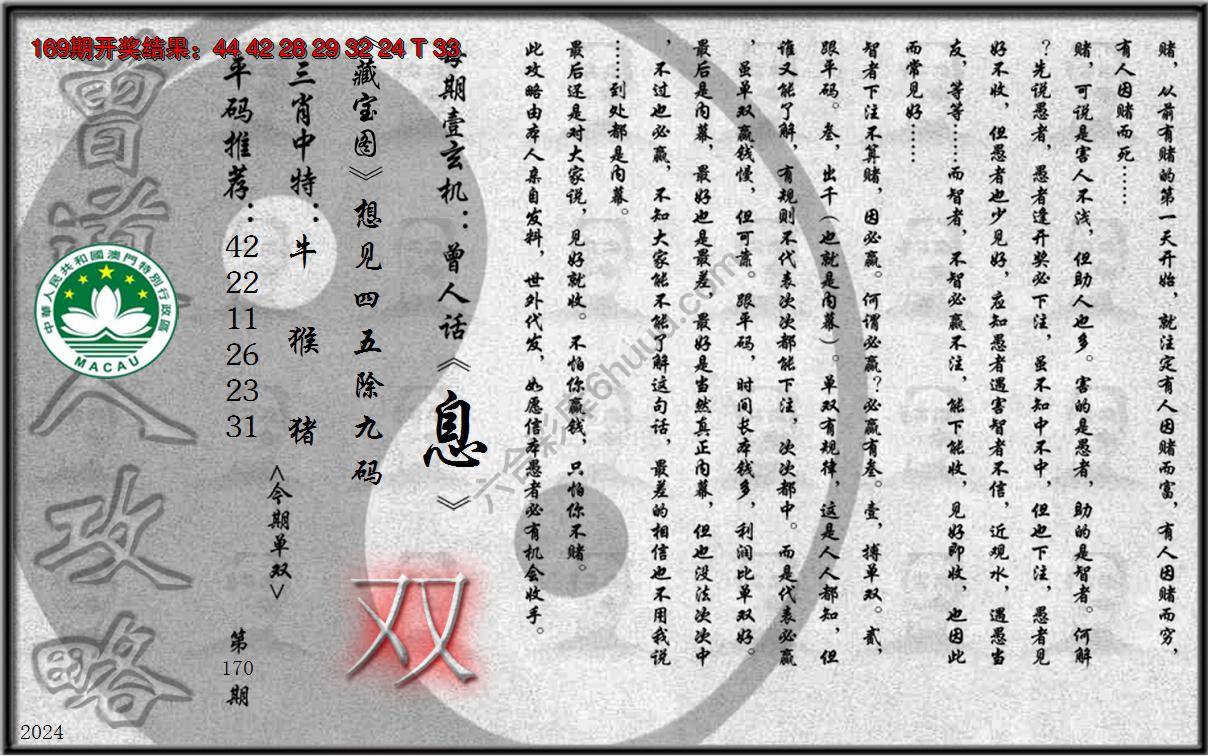 169期开奖结果：44 42 28 29 32 24 T 33
赌，从前有赌的第一天开始，就注定有人因赌而富，有人因赌而穷，
有人因赌而死……
赌，可说是害人不浅，但助人也多。害的是愚者，助的是智者。何解
？先说愚者，愚者逢开奖必下注，虽不知中不中，但也下注，愚者见
好不收，但愚者也少见好，应知愚者遇害智者不信，近观水，遇愚当
友，等等……而智者，不智必赢不注，能下能收，见好即收，也因此
而常见好……
智者下注不算赌，因必赢。何谓必赢？必赢有叁。壹，搏单双。贰，
跟平码。叁，出千（也就是内幕）。单双有规律，这是人人都知，但
谁又能了解，有规则不代表次次都能下注，次次都中。而是代表必赢
，虽单双赢钱慢，但可靠。跟平码，时间长本钱多，利润比单双好。
最后是内幕，最好也是最差，最好是当然真正内幕，但也没法次次中
，不过也必赢，不知大家能不能了解这句话，最差的相信也不用我说
……到处都是内幕。
最后还是对大家说，见好就收。不怕你赢钱，只怕你不赌。
此攻略由本人亲自发料，世外代发，如愿信本愚者必有机会收手。
每期壹玄机：曾人话《息》
《藏宝图》想见四五除九码
双
三肖中特：牛 猴 猪
<今期单双>
平码推荐：
42
22
11
26
23
31
第
170
期
曾道人攻略
中華人民共和國澳門特別行政區
MACAU
2024